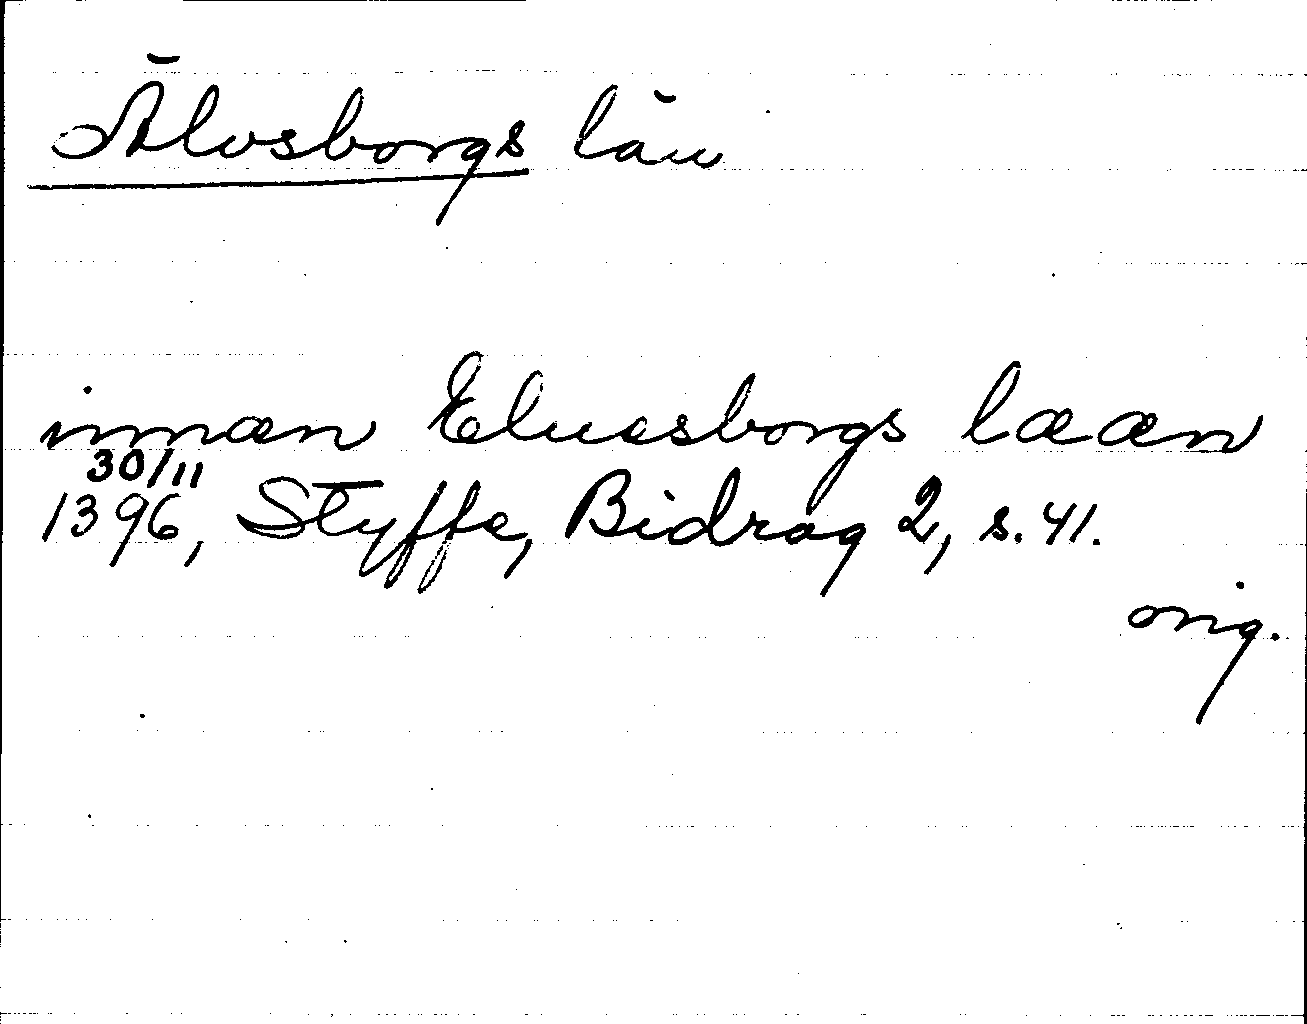 Älvsborgs län
innæn Eluesborgs lææn
30/11
1396, Styffe, Bidrag 2, s. 41.
orig.